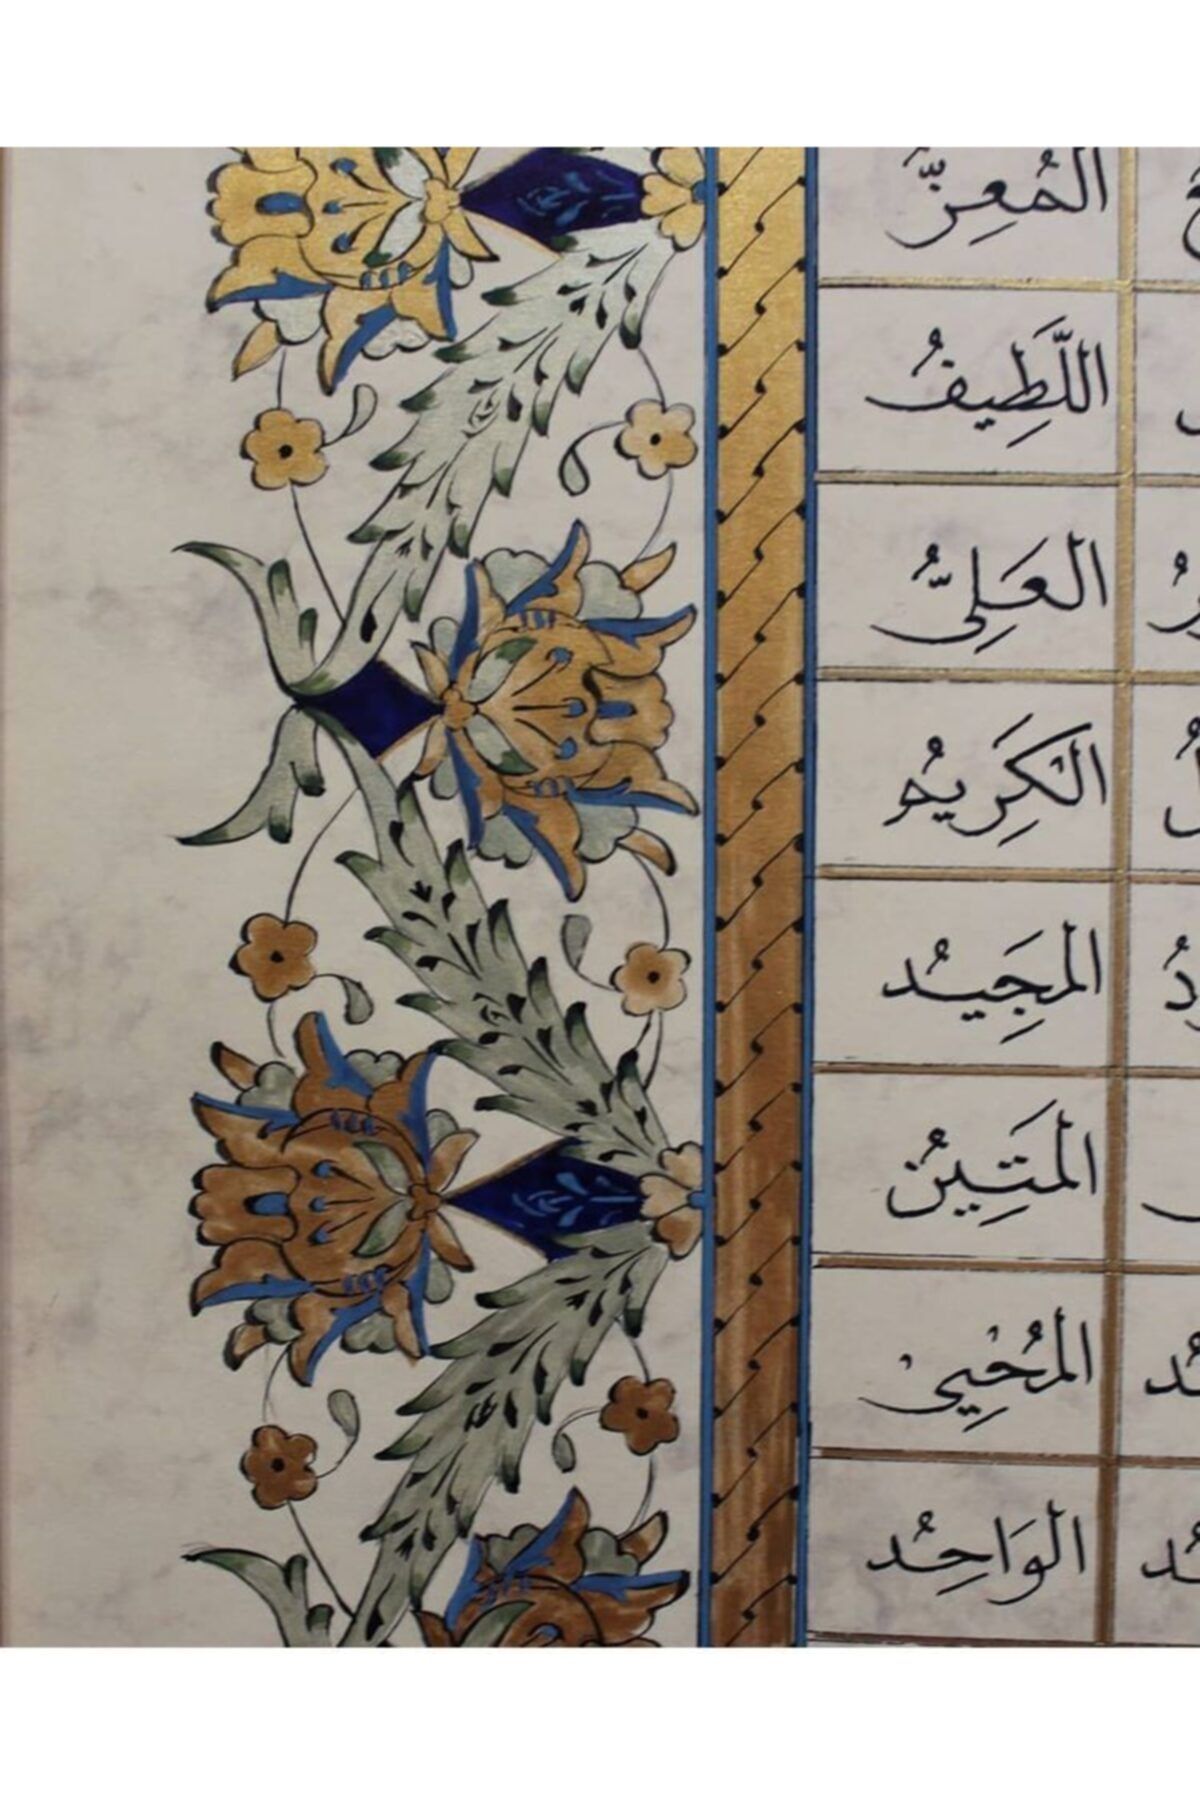 المُعِزُّ
اللَّطِيفُ
العَلِيُّ
الكَرِيمُ
المَجِيدُ
المَتِينُ
المُحْيِيْ
الوَاحِدُ